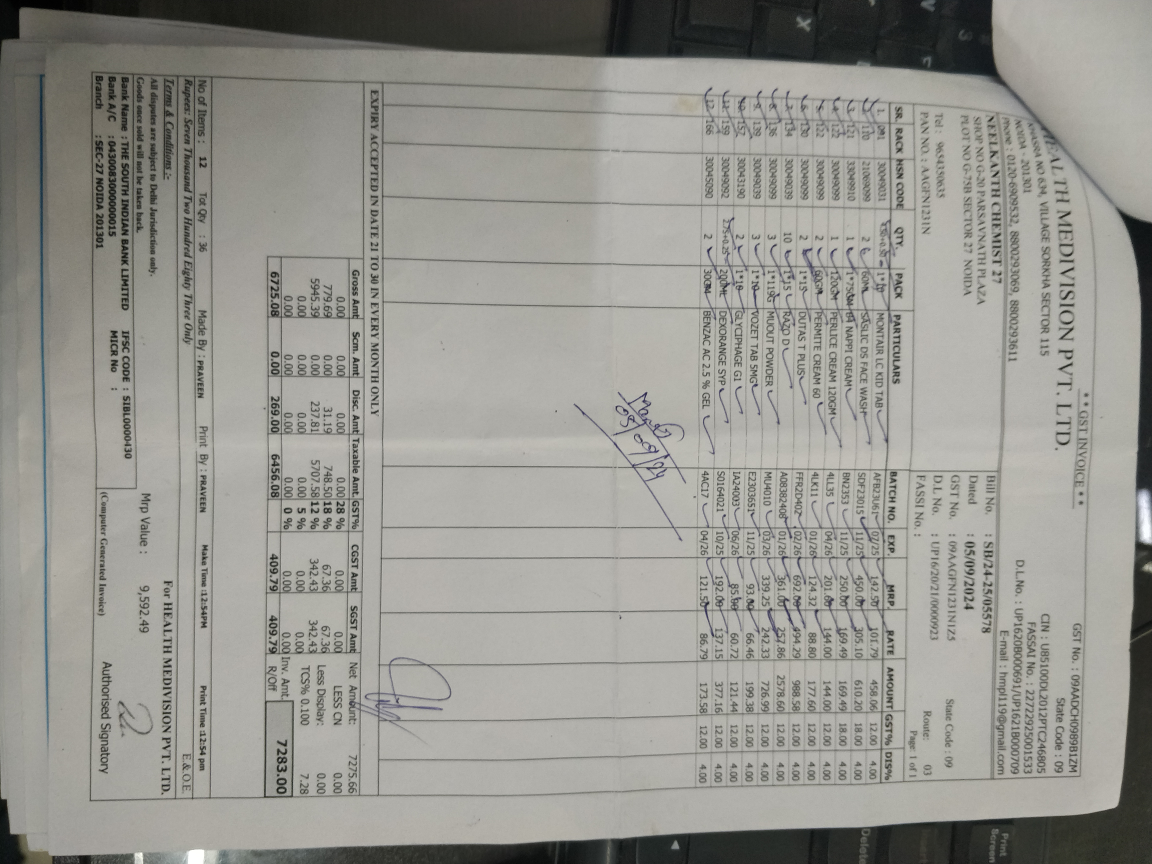 ** GST INVOICE **
HEALTH MEDIVISION PVT. LTD.
KHASRA NO 634, VILLAGE SORKHA SECTOR 115
NOIDA - 201301
Phone : 0120-6909532, 8800293069, 8800293611
GST No. : 09AADCH0989B1ZM
State Code : 09
CIN : U85100DL2012PTC246805
FASSAI No. : 22722925001533
D.L.No. : UP1620B000691/UP1621B000709
E-mail : hmpl119@gmail.com
NEELKANTH CHEMIST 27
SHOP NO G-20 PARSAVNATH PLAZA
PLOT NO G-75B SECTOR 27 NOIDA
Tel : 9654350635
PAN NO. : AAGFN1231N
Bill No. : SB/24-25/05578
Dated : 05/09/2024
GST No. : 09AAGFN1231N1Z5 State Code : 09
D.L No. : UP16/20/21/0000923 Route: 03
FASSI No. : Page: 1 of 1
SR. RACK HSN CODE QTY. PACK PARTICULARS BATCH NO. EXP. MRP. RATE AMOUNT GST% DIS%
1. 30049031 MONTAIR LC KID TAB AFB23U61 07/25 142.50 101.79 458.06 12.00 4.00
110 21069099 2 60ML SASLIC DS FACE WASH SDF23015 11/25 450.00 305.10 610.20 18.00 4.00
3. 121 33049910 1 NAPPI CREAM BN2353 11/25 250.00 169.49 169.49 18.00 4.00
4. 122 30049099 1 120GM PERLICE CREAM 120GM 4LL35 04/26 201.60 144.00 144.00 12.00 4.00
122 30049099 2 60GM PERMITE CREAM 60 4LK11 01/26 124.32 88.80 177.60 12.00 4.00
130 30049099 2 1*15 DUTAS T PLUS FFR2D402 02/26 692.00 494.29 988.58 12.00 4.00
7. 134 30049039 10 1*15 RAZO D A08382408 01/26 361.00 257.86 2578.60 12.00 4.00
8. 136 30049099 3 1*119G MUOUT POWDER MU4010 03/26 339.25 242.33 726.99 12.00 4.00
9. 139 30049039 3 1*10 VOZET TAB 5MG E2303651 11/25 93.00 66.46 199.38 12.00 4.00
10. 157 30043190 2 1*10 GLYCIPHAGE G1 IA24003 06/26 85.00 60.72 121.44 12.00 4.00
11. 159 30049092 2.75+0.25 200ML DEXORANGE SYP S0164021 10/25 192.00 137.15 377.16 12.00 4.00
12. 166 30045090 2 30GM BENZAC AC 2.5 % GEL 4AC17 04/26 121.50 86.79 173.58 12.00 4.00
05/09/24
EXPIRY ACCEPTED IN DATE 21 TO 30 IN EVERY MONTH ONLY
Gross Amt Scm. Amt Disc. Amt Taxable Amt. GST% CGST Amt SGST Amt
0.00 0.00 0.00 0.00 28 % 0.00 0.00
779.69 0.00 31.19 748.50 18 % 67.36 67.36
5945.39 0.00 237.81 5707.58 12 % 342.43 342.43
0.00 0.00 0.00 0.00 5 % 0.00 0.00
0.00 0.00 0.00 0.00 0 % 0.00 0.00
6725.08 0.00 269.00 6456.08 409.79 409.79
Net Amount: 7275.66
LESS CN 0.00
Less Display: 0.00
TCS% 0.100 7.28
Inv. Amt.
R/Off 7283.00
No of Items : 12 Tot Qty : 36 Made By : PRAVEEN Print By : PRAVEEN Make Time :12:54PM Print Time :12:54 pm
Rupees: Seven Thousand Two Hundred Eighty Three Only E.&.O.E.
Terms & Conditions :-
All disputes are subject to Delhi Jurisdiction only.
Goods once sold will not be taken back.
For HEALTH MEDIVISION PVT. LTD.
Mrp Value : 9,592.49
Bank Name : THE SOUTH INDIAN BANK LIMITED IFSC CODE : SIBL0000430
Bank A/C : 0430083000000015 MICR No :
Branch : SEC-27 NOIDA 201301
(Computer Generated Invoice)
Authorised Signatory
Print
Screen
Delete